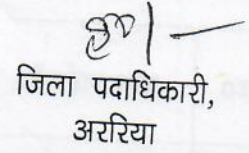 ह०/—
जिला पदाधिकारी,
अररिया